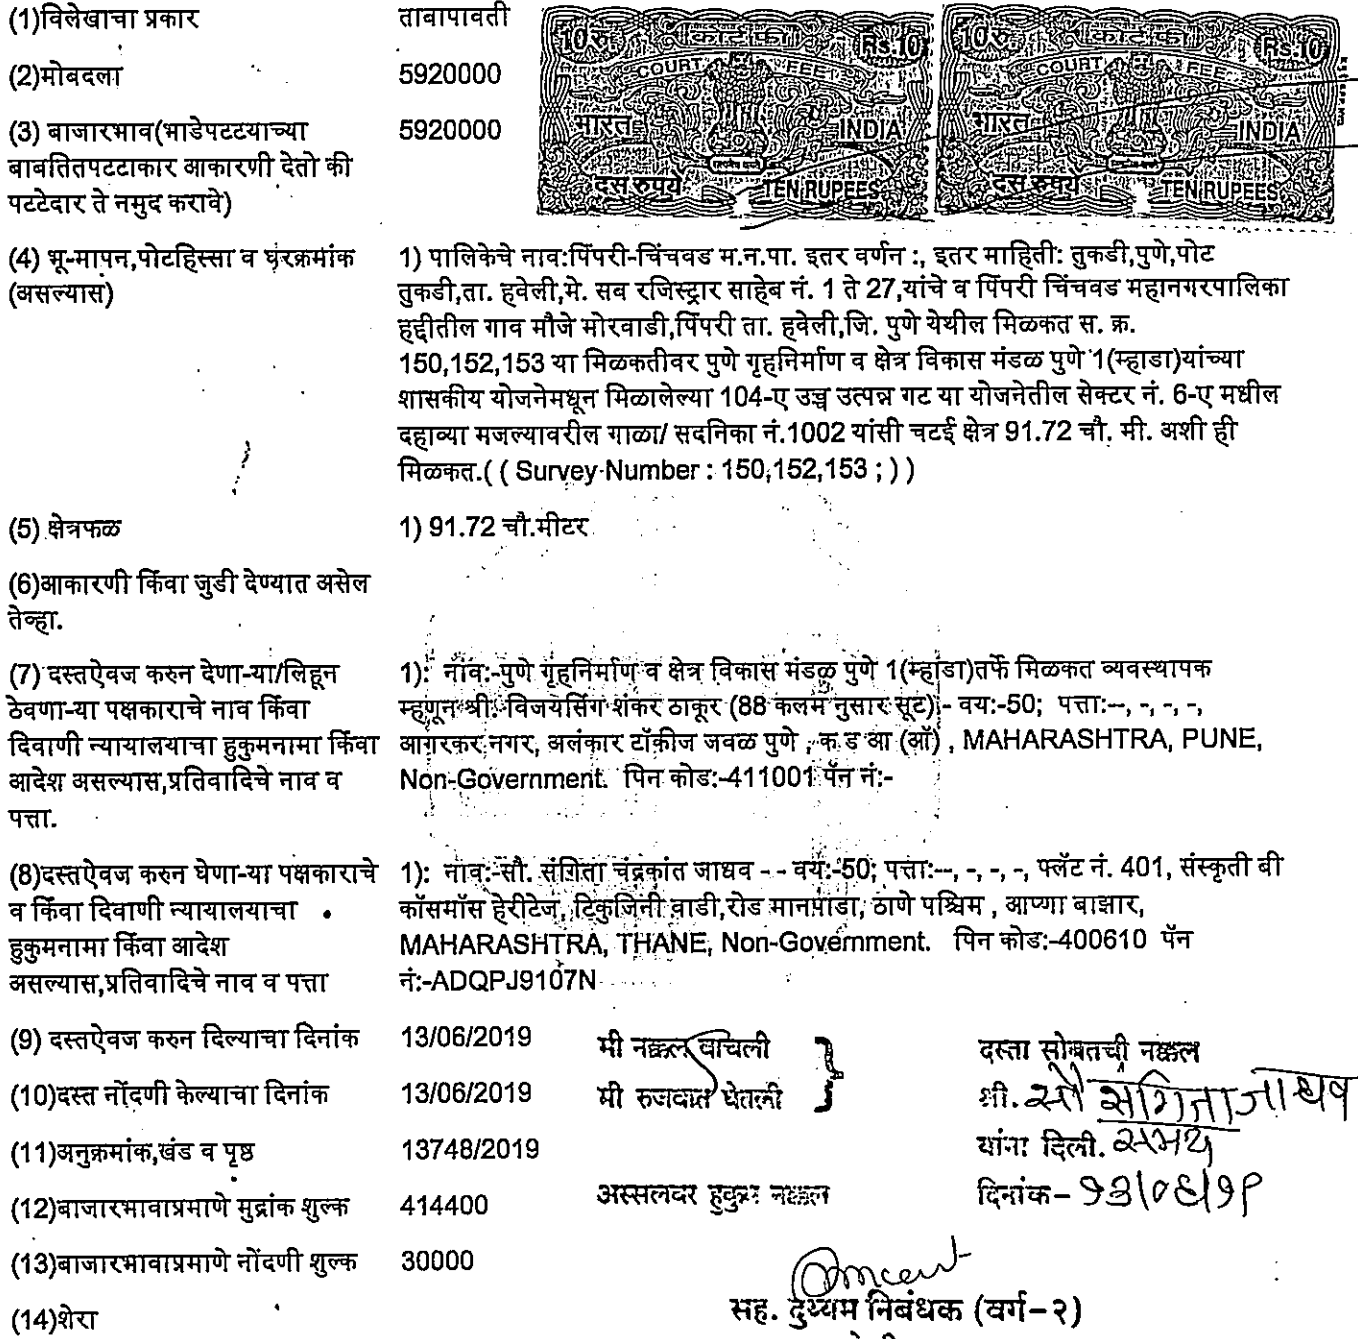 (1)विलेखाचा प्रकार
ताबापावती
10रु. कोर्ट फी Rs.10
COURT FEE
भारत INDIA
दस रुपये TEN RUPEES
10रु. कोर्ट फी Rs.10
COURT FEE
भारत INDIA
दस रुपये TEN RUPEES
(2)मोबदला
5920000
(3) बाजारभाव(भाडेपटटयाच्या
5920000
बाबतितपटटाकार आकारणी देतो की
पटटेदार ते नमुद करावे)
(4) भू-मापन,पोटहिस्सा व घरक्रमांक
(असल्यास)
1) पालिकेचे नाव:पिंपरी-चिंचवड म.न.पा. इतर वर्णन :, इतर माहिती: तुकडी,पुणे,पोट
तुकडी,ता. हवेली,मे. सब रजिस्ट्रार साहेब नं. 1 ते 27,यांचे व पिंपरी चिंचवड महानगरपालिका
हद्दीतील गाव मौजे मोरवाडी,पिंपरी ता. हवेली,जि. पुणे येथील मिळकत स. क्र.
150,152,153 या मिळकतीवर पुणे गृहनिर्माण व क्षेत्र विकास मंडळ पुणे 1(म्हाडा)यांच्या
शासकीय योजनेमधून मिळालेल्या 104-ए उच्च उत्पन्न गट या योजनेतील सेक्टर नं. 6-ए मधील
दहाव्या मजल्यावरील गाळा/ सदनिका नं.1002 यांसी चटई क्षेत्र 91.72 चौ. मी. अशी ही
मिळकत.( ( Survey Number : 150,152,153 ; ) )
(5) क्षेत्रफळ
1) 91.72 चौ.मीटर
(6)आकारणी किंवा जुडी देण्यात असेल
तेव्हा.
(7) दस्तऐवज करुन देणा-या/लिहून
ठेवणा-या पक्षकाराचे नाव किंवा
दिवाणी न्यायालयाचा हुकुमनामा किंवा
आदेश असल्यास,प्रतिवादिचे नाव व
पत्ता.
1): नाव:-पुणे गृहनिर्माण व क्षेत्र विकास मंडळ पुणे 1(म्हाडा)तर्फे मिळकत व्यवस्थापक
म्हणून श्री. विजयसिंग शंकर ठाकूर (88 कलम नुसार सूट) - वय:-50; पत्ता:--, -, -, -,
आगरकर नगर, अलंकार टॉकीज जवळ पुणे , क ड आ (ऑ) , MAHARASHTRA, PUNE,
Non-Government. पिन कोड:-411001 पॅन नं:-
(8)दस्तऐवज करुन घेणा-या पक्षकाराचे
व किंवा दिवाणी न्यायालयाचा
हुकुमनामा किंवा आदेश
असल्यास,प्रतिवादिचे नाव व पत्ता
1): नाव:-सौ. संगिता चंद्रकांत जाधव - - वय:-50; पत्ता:--, -, -, -, फ्लॅट नं. 401, संस्कृती बी
कॉसमॉस हेरीटेज, टिकुजिनी वाडी,रोड मानपाडा, ठाणे पश्चिम , आप्णा बाझार,
MAHARASHTRA, THANE, Non-Government. पिन कोड:-400610 पॅन
नं:-ADQPJ9107N
(9) दस्तऐवज करुन दिल्याचा दिनांक
13/06/2019
मी नक्कल वाचली
दस्ता सोबतची नक्कल
(10)दस्त नोंदणी केल्याचा दिनांक
13/06/2019
मी रुजवात घेतली
श्री. सौ संगिता जाधव
(11)अनुक्रमांक,खंड व पृष्ठ
13748/2019
यांना दिली.
(12)बाजारभावाप्रमाणे मुद्रांक शुल्क
414400
अस्सलवर हुकुम नक्कल
दिनांक- १३/०६/१९
(13)बाजारभावाप्रमाणे नोंदणी शुल्क
30000
(14)शेरा
सह. दुय्यम निबंधक (वर्ग-२)